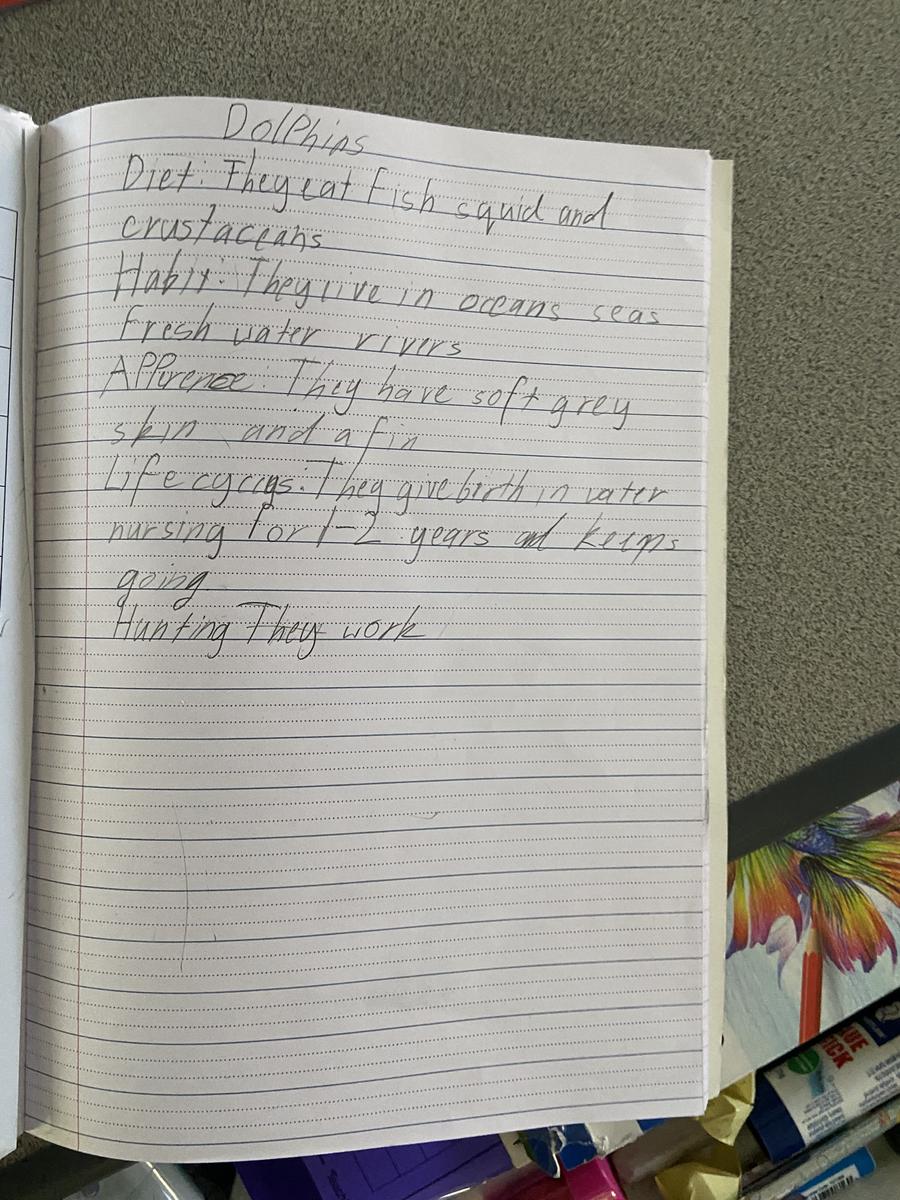 Dolphins
Diet: They eat fish squid and
crustaceans
Habit: They live in oceans seas
fresh water rivers
APPerence: They have soft grey
skin and a fin
Life cyccys: They give birth in vater
nursing for 1-2 years and keeps
going
Hunting They work
UE
ICK